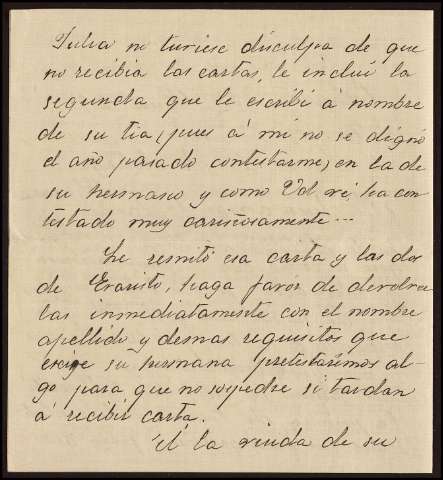 Julia no tuviese disculpa de que
no recibia las cartas, le incluí la
segunda que le escribí á nombre
de su tia, (pues á mi no se dignó
el año pasado contestarme) en la de
su hermano y como Vd vé, ha con
testado muy cariñosamente...
Le remito esa carta y las dos
de Evaristo, haga favor de devolver
las inmediatamente con el nombre
apellido y demas requisitos que
exige su hermana pretestaremos al-
go para que no sospeche si tardan
á recibir carta.
Á la viuda de su